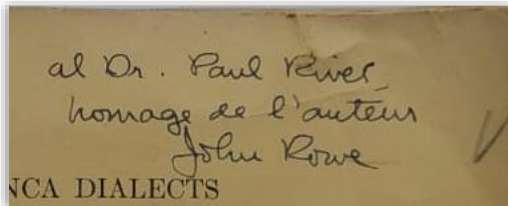 al Dr. Paul Rivet
homage de l'auteur
John Rowe
NCA DIALECTS